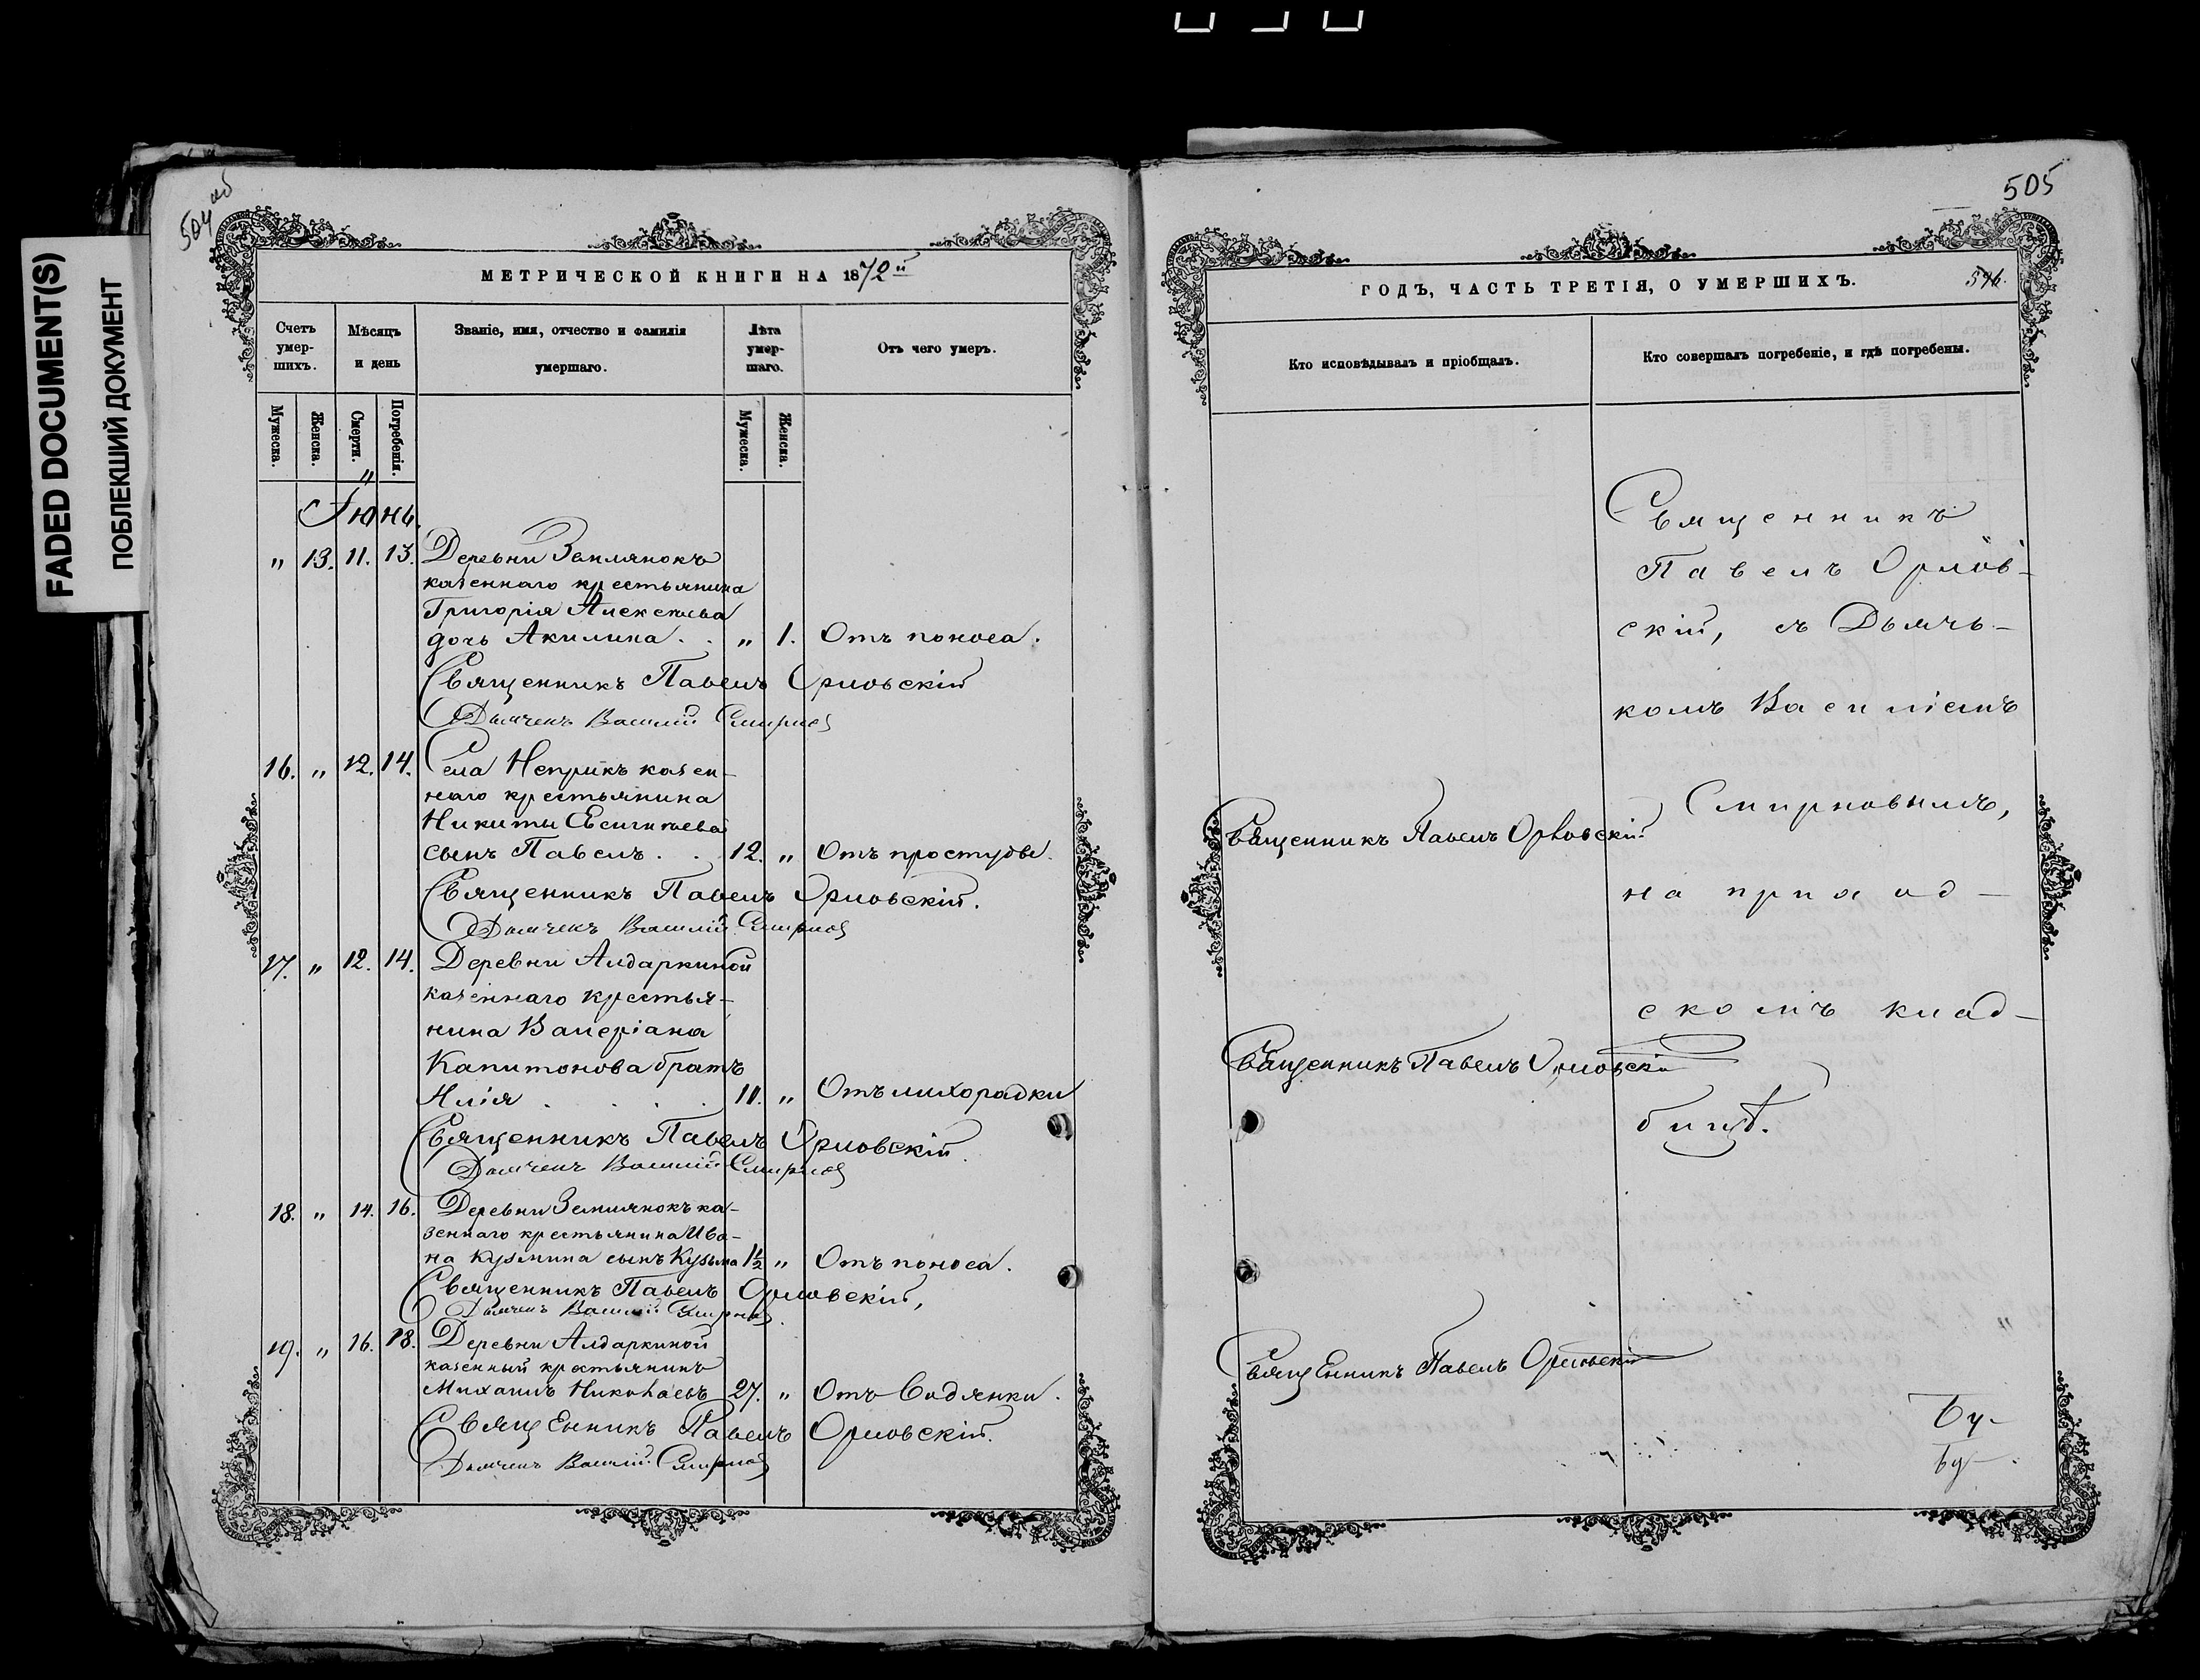 FADED DOCUMENT(S)
ПОБЛЕКШИЙ ДОКУМЕНТ
504 об
МЕТРИЧЕСКОЙ КНИГИ НА 1872й
Счетъ умер-шихъ.
Мѣсяцъ и день
Званіе, имя, отчество и фамилія умершаго.
Лѣта умер-шаго.
Отъ чего умеръ.
Мужеска.
Женска.
Смерти.
Погребенія.
Мужеска.
Женска.
Іюнь.
" 13. 11. 13. Деревни Землянокъ
казеннаго крестьянина
Григорія Алексѣева
дочь Акилина . . " 1. Отъ поноса.
Священникъ Павелъ Орловскій
Дьячекъ Василій Смирнов
16. " 12. 14. Села Неприкъ казен-
наго крестьянина
Никиты Евсигнѣева
сынъ Павелъ . . 12. " Отъ простуды.
Священникъ Павелъ Орловскій.
Дьячекъ Василій Смирнов
17. " 12. 14. Деревни Алдаркиной
казеннаго крестья-
нина Валеріана
Капитонова братъ
Илія . . . . 11. " Отъ лихорадки
Священникъ Павелъ Орловскій
Дьячекъ Василій Смирнов
18. " 14. 16. Деревни Землянокъ ка-
зеннаго крестьянина Ива-
на Кузмина сынъ Кузьма 1½ " Отъ поноса.
Священникъ Павелъ Орловскій,
Дьячекъ Василій Смирнов
19. " 16. 18. Деревни Алдаркиной
казенный крестьянинъ
Михаилъ Николаевъ 27. " Отъ водянки.
Священникъ Павелъ Орловскій.
Дьячекъ Василій Смирнов
505
ГОДЪ, ЧАСТЬ ТРЕТІЯ, О УМЕРШИХЪ.
Кто исповѣдывалъ и пріобщалъ.
Кто совершалъ погребеніе, и гдѣ погребены.
Священникъ
Павелъ Орлов-
скій, съ Дьяч-
комъ Василіемъ
Смирновымъ,
Священникъ Павелъ Орловскій
на приход-
скомъ клад-
Священникъ Павелъ Орловскій
бищѣ.
Священникъ Павелъ Орловскій